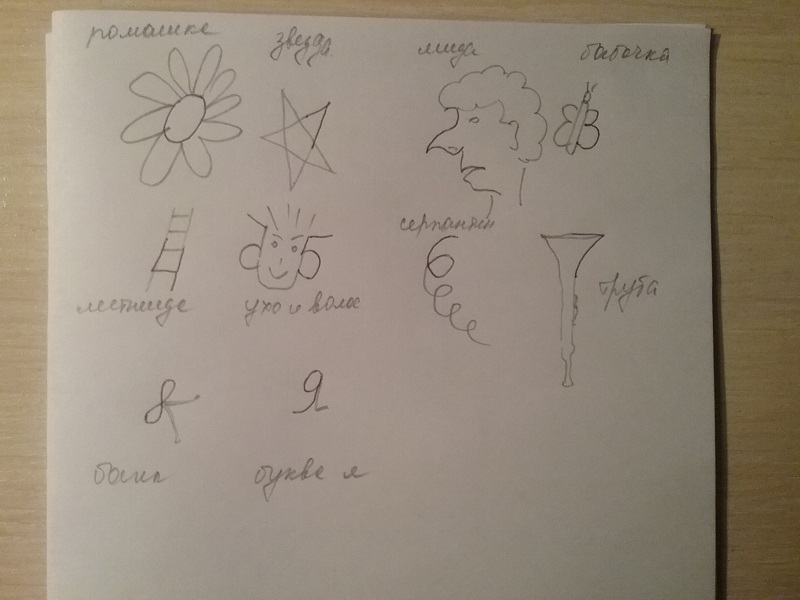 ромашка
звезда
бабочка
серпантин
труба
лестница
ухо и волос
бант
Я
буква я